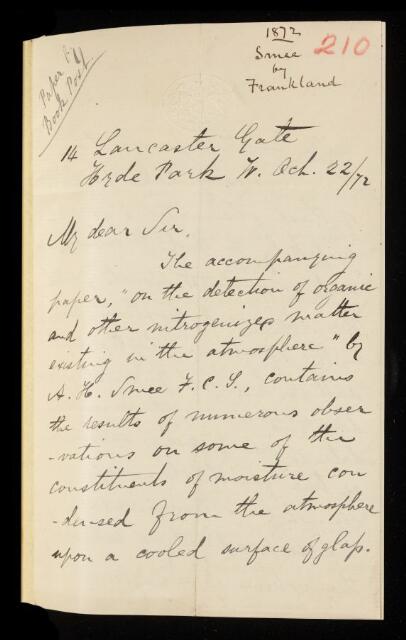 Paper by
Book Post
1872
Smee
by
Frankland
210
14 Lancaster Gate
Hyde Park W. Oct. 22/72
My dear Sir,
The accompanying
paper, "on the detection of organic
and other nitrogenized matter
existing in the atmosphere" by
A. H. Smee F.C.S., contains
the results of numerous obser
-vations on some of the
constituents of moisture con
-densed from the atmosphere
upon a cooled surface of glass.